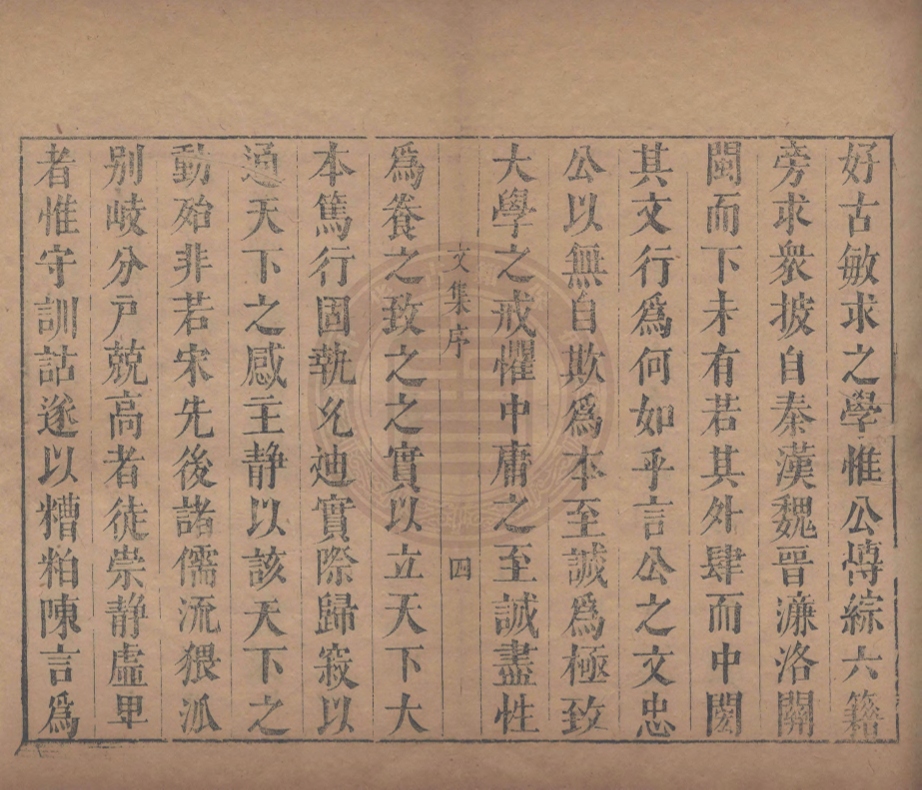 好古敏求之學惟公博綜六籍
旁求衆披自秦漢魏晉濂洛關
閩而下未有若其外肆而中閎
其文行爲何如乎言公之文忠
公以無自欺爲本至誠爲極致
大學之戒懼中庸之至誠盡性
文集序
四
爲養之致之之實以立天下大
本篤行固執允迪實際歸寂以
通天下之感主静以該天下之
動殆非若宋先後諸儒流猥派
别岐分戸兢高者徒崇静虚卑
者惟守訓詁遂以糟粕陳言爲